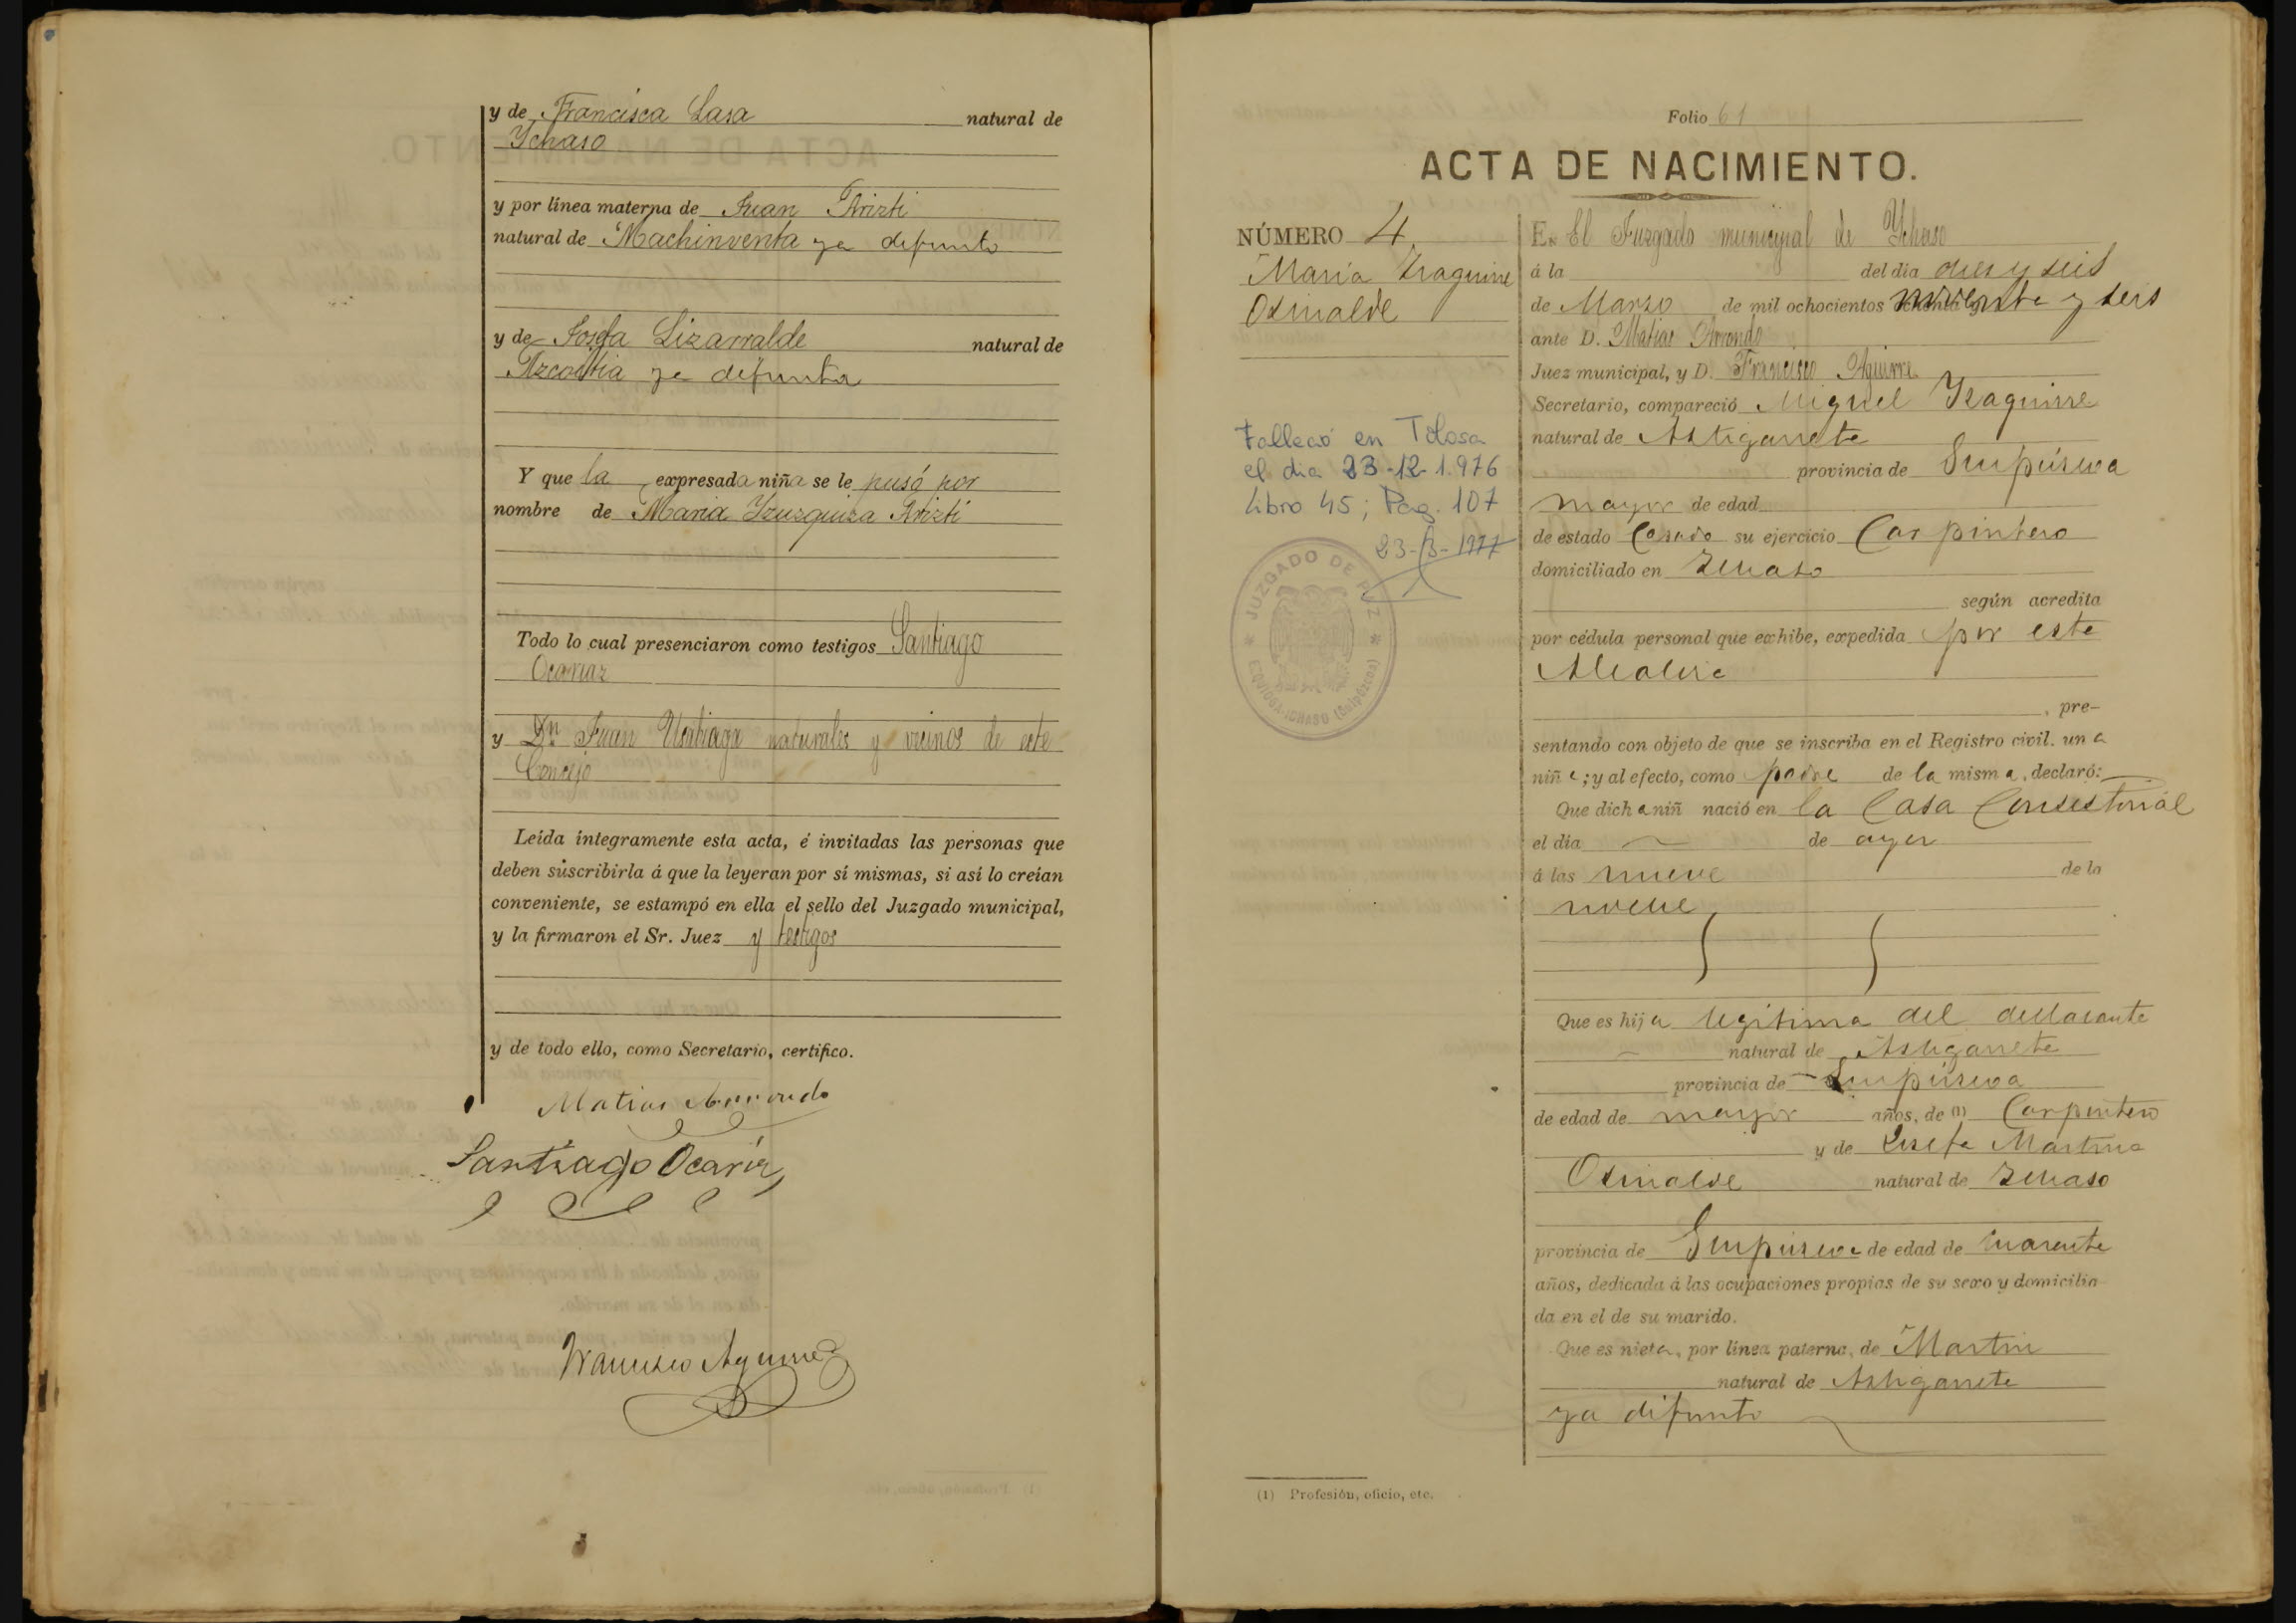 y de Francisca Lasa natural de
Ychaso
y por línea materna de Juan Arizti
natural de Machinventa ya difunto
y de Josefa Lizarralde natural de
Azcoitia ya difunta
Y que la expresada niña se le pusó por
nombre de Maria Yzuzquiza Arizti
Todo lo cual presenciaron como testigos Santiago
Ocariz
y Dn Juan Usabiaga naturales y vicinos de este
Concejo
Leída íntegramente esta acta, é invitadas las personas que
deben suscribirla á que la leyeran por sí mismas, si así lo creían
conveniente, se estampó en ella el sello del Juzgado municipal,
y la firmaron el Sr. Juez y testigos
y de todo ello, como Secretario, certifico.
Matias Arrondo
Santiago Ocariz
Francisco Aguirre
Folio 61
ACTA DE NACIMIENTO.
NÚMERO 4
Maria Izaguirre
Osinalde
Falleció en Tolosa
el dia 23-12-1.976
Libro 45; Pag. 107
23-3-1977
JUZGADO DE PAZ
EZQUIOGA-ICHASO (Guipúzcoa)
En El Juzgado municipal de Ychaso
á la del dia diez y seis
de Marzo de mil ochocientos noventa y seis
ante D. Matias Arrondo
Juez municipal, y D. Francisco Aguirre
Secretario, compareció Miguel Yzaguirre
natural de Astigarreta
provincia de Guipúzcoa
mayor de edad
de estado Casado su ejercicio Carpintero
domiciliado en Ichaso
según acredita
por cédula personal que exhibe, expedida por este
Alcalde
, pre-
sentando con objeto de que se inscriba en el Registro civil. una
niña; y al efecto, como padre de la misma, declaró:
Que dicha niñ nació en la Casa Consistorial
el día de ayer
á las nueve de la
noche
Que es hija legitima del declarante
natural de Astigarreta
provincia de Guipúzcoa
de edad de mayor años, de (1) Carpintero
y de Josefa Martina
Osinalde natural de Ichaso
provincia de Guipúzcoa de edad de cuarenta
años, dedicada á las ocupaciones propias de su sexo y domicilia
da en el de su marido.
Que es nieta, por línea paterna, de Martin
natural de Astigarreta
ya difunto
(1) Profesión, oficio, etc.